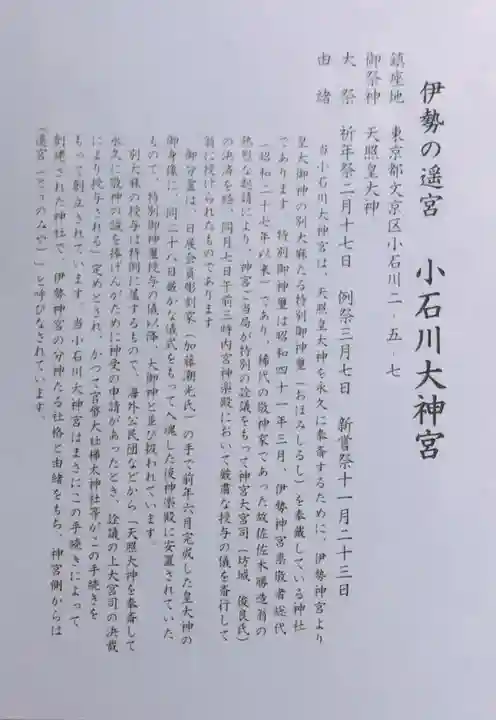 伊勢の遥宮　小石川大神宮
鎮座地　東京都文京区小石川二‐五‐七
御祭神　天照皇大神
大祭　祈年祭二月十七日　例祭三月七日　新嘗祭十一月二十三日
由緒
当小石川大神宮は、天照皇大神を永久に奉斎するために、伊勢神宮より
皇大御神の別大麻たる特別御神璽（おほみしるし）を奉戴している神社
であります。特別御神璽は昭和四十一年三月、伊勢神宮崇敬者総代
（昭和二十七年以来）であり、稀代の敬神家であった故佐佐木勝造翁の
熱烈な起請により、神宮ご当局が特別の詮議をもって神宮大宮司（坊城　俊良氏）
の決済を経、同月七日午前三時内宮神楽殿において厳粛な授与の儀を斎行して
翁に授けられたものであります
御分霊は、日展会員彫刻家（加藤潮光氏）の手で前年六月完成した皇大神の
御身像に、同二十八日厳かな儀式をもって入魂した後神楽殿に安置されていた
もので、特別御神璽授与の儀以降、大御神と並び扱われています。
別大麻の授与は特例に属するもので、海外公民団などから「天照大神を奉斎して
永久に敬神の誠を捧げんがために神受の申請があったとき、詮議の上大宮司の決裁
により授与される」定めとされ、かつて官弊大社樺太神社等がこの手続きを
もって創立されています。当小石川大神宮はまさにこの手続きによって、
創建された神社で、伊勢神宮の分神たる社格と由緒をもち、神宮側からは
「遥宮（とうのみや）」と呼びなされています。